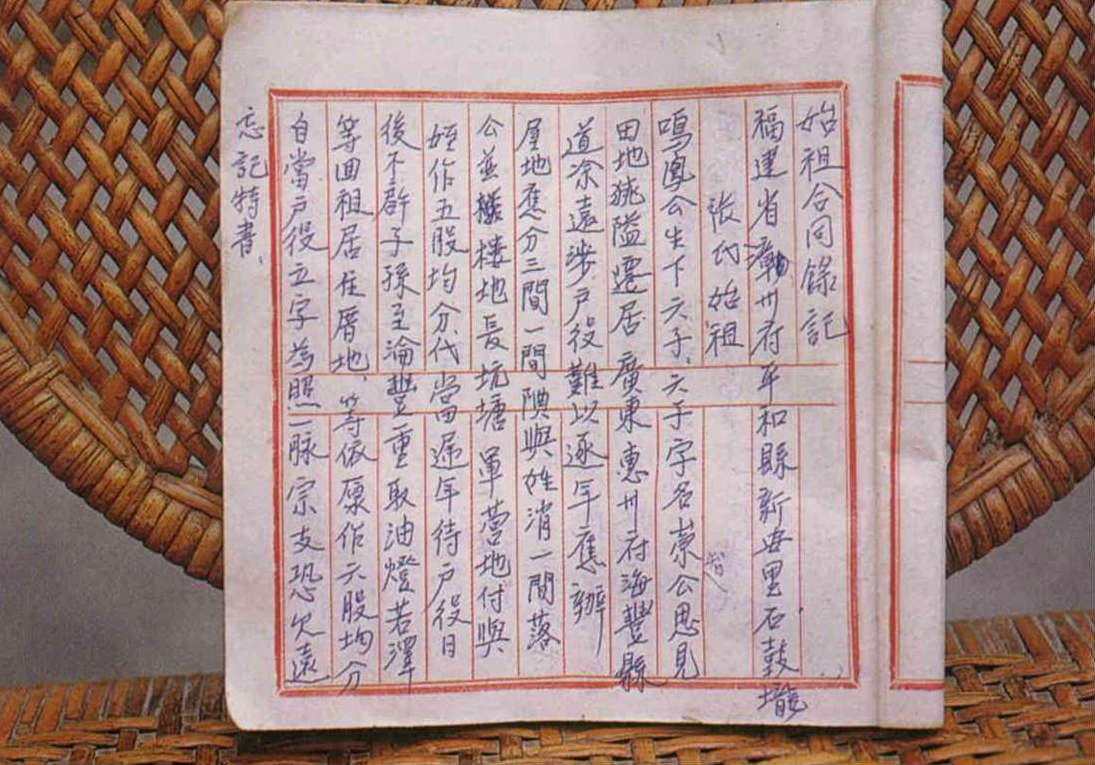 始祖合同錄記
福建省漳州府平和縣新安里石鼓壠
張氏始祖
鳴鳳公生下六子，六子字名崇公思見
智
田地狹隘遷居廣東惠州府海豐縣
道凃遠涉戶役難以逐年應辦
屋地應分三間一間與姓消一間落
公並樓地長坑塘軍營地付與
姪作五股均分代當遞年待戶役日
後不辭子孫至淪豐重取油燈若澤
等回祖居住厝地，等依原作六股均分
自當戶役立字為照一脉宗支恐久遠
忘記特書，